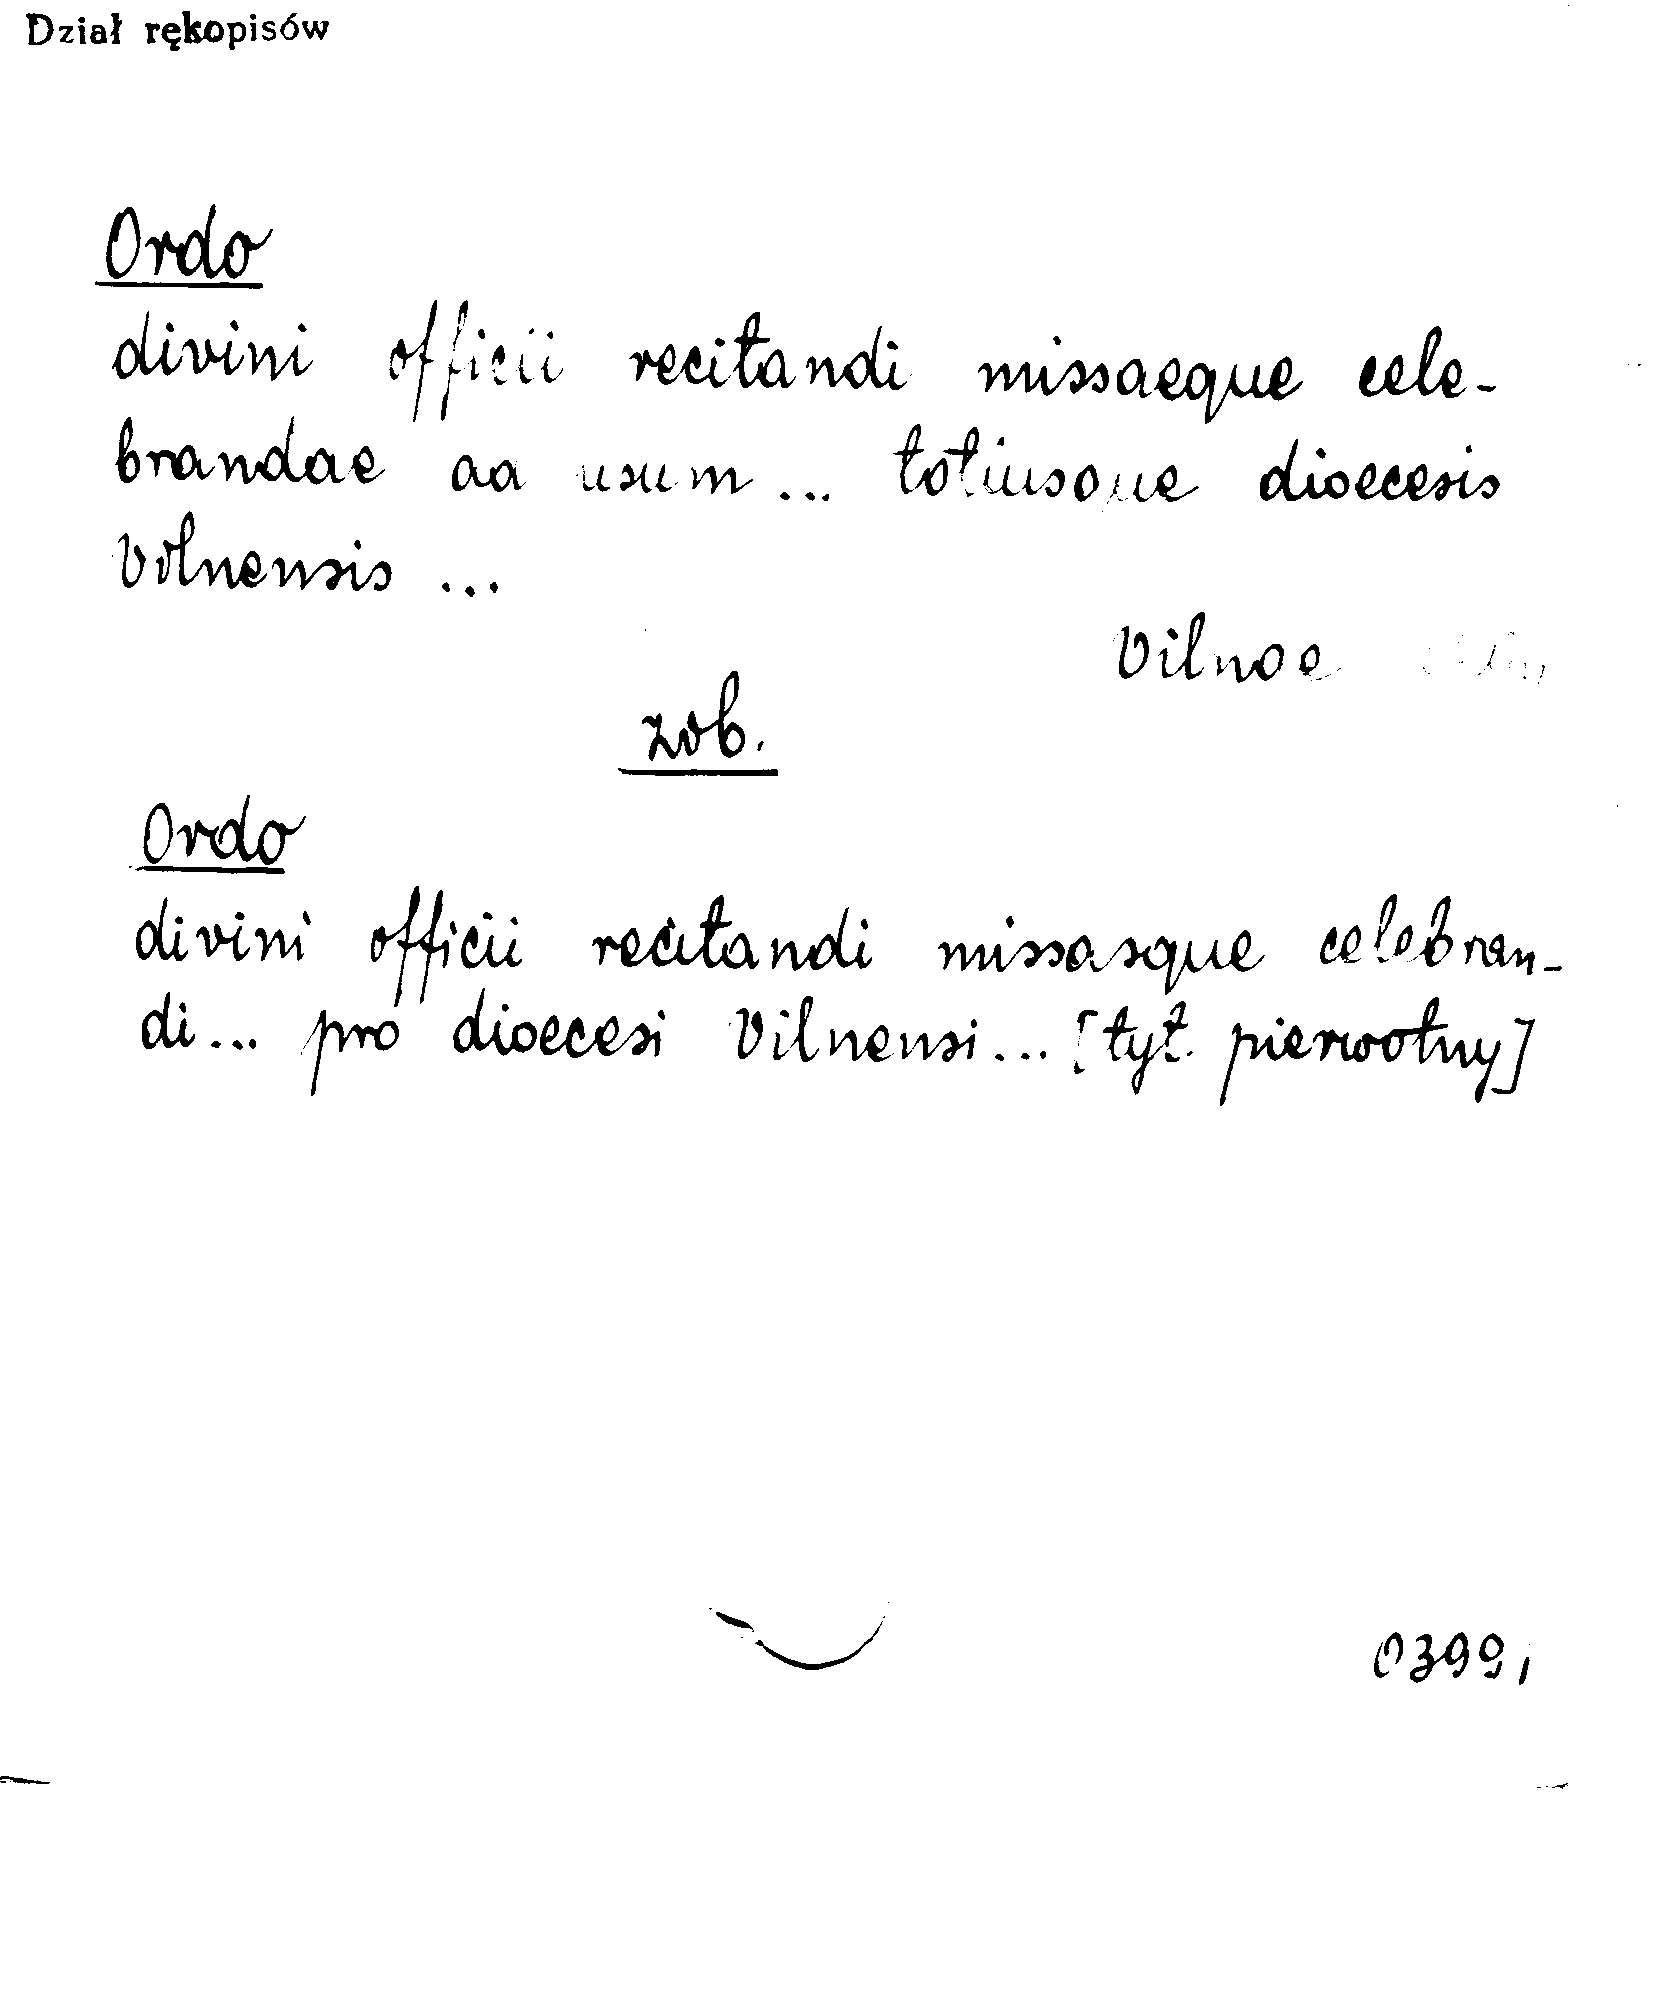 Dział rękopisów
Ordo
divini officii recitandi missaeque cele-
brandae ad usum ... totiusque dioecesis
Vilnensis ...
Vilnae
zob.
Ordo
divini officii recitandi missasque celebran-
di ... pro dioecesi Vilnensi ... [tyt. pierwotny]
0399,